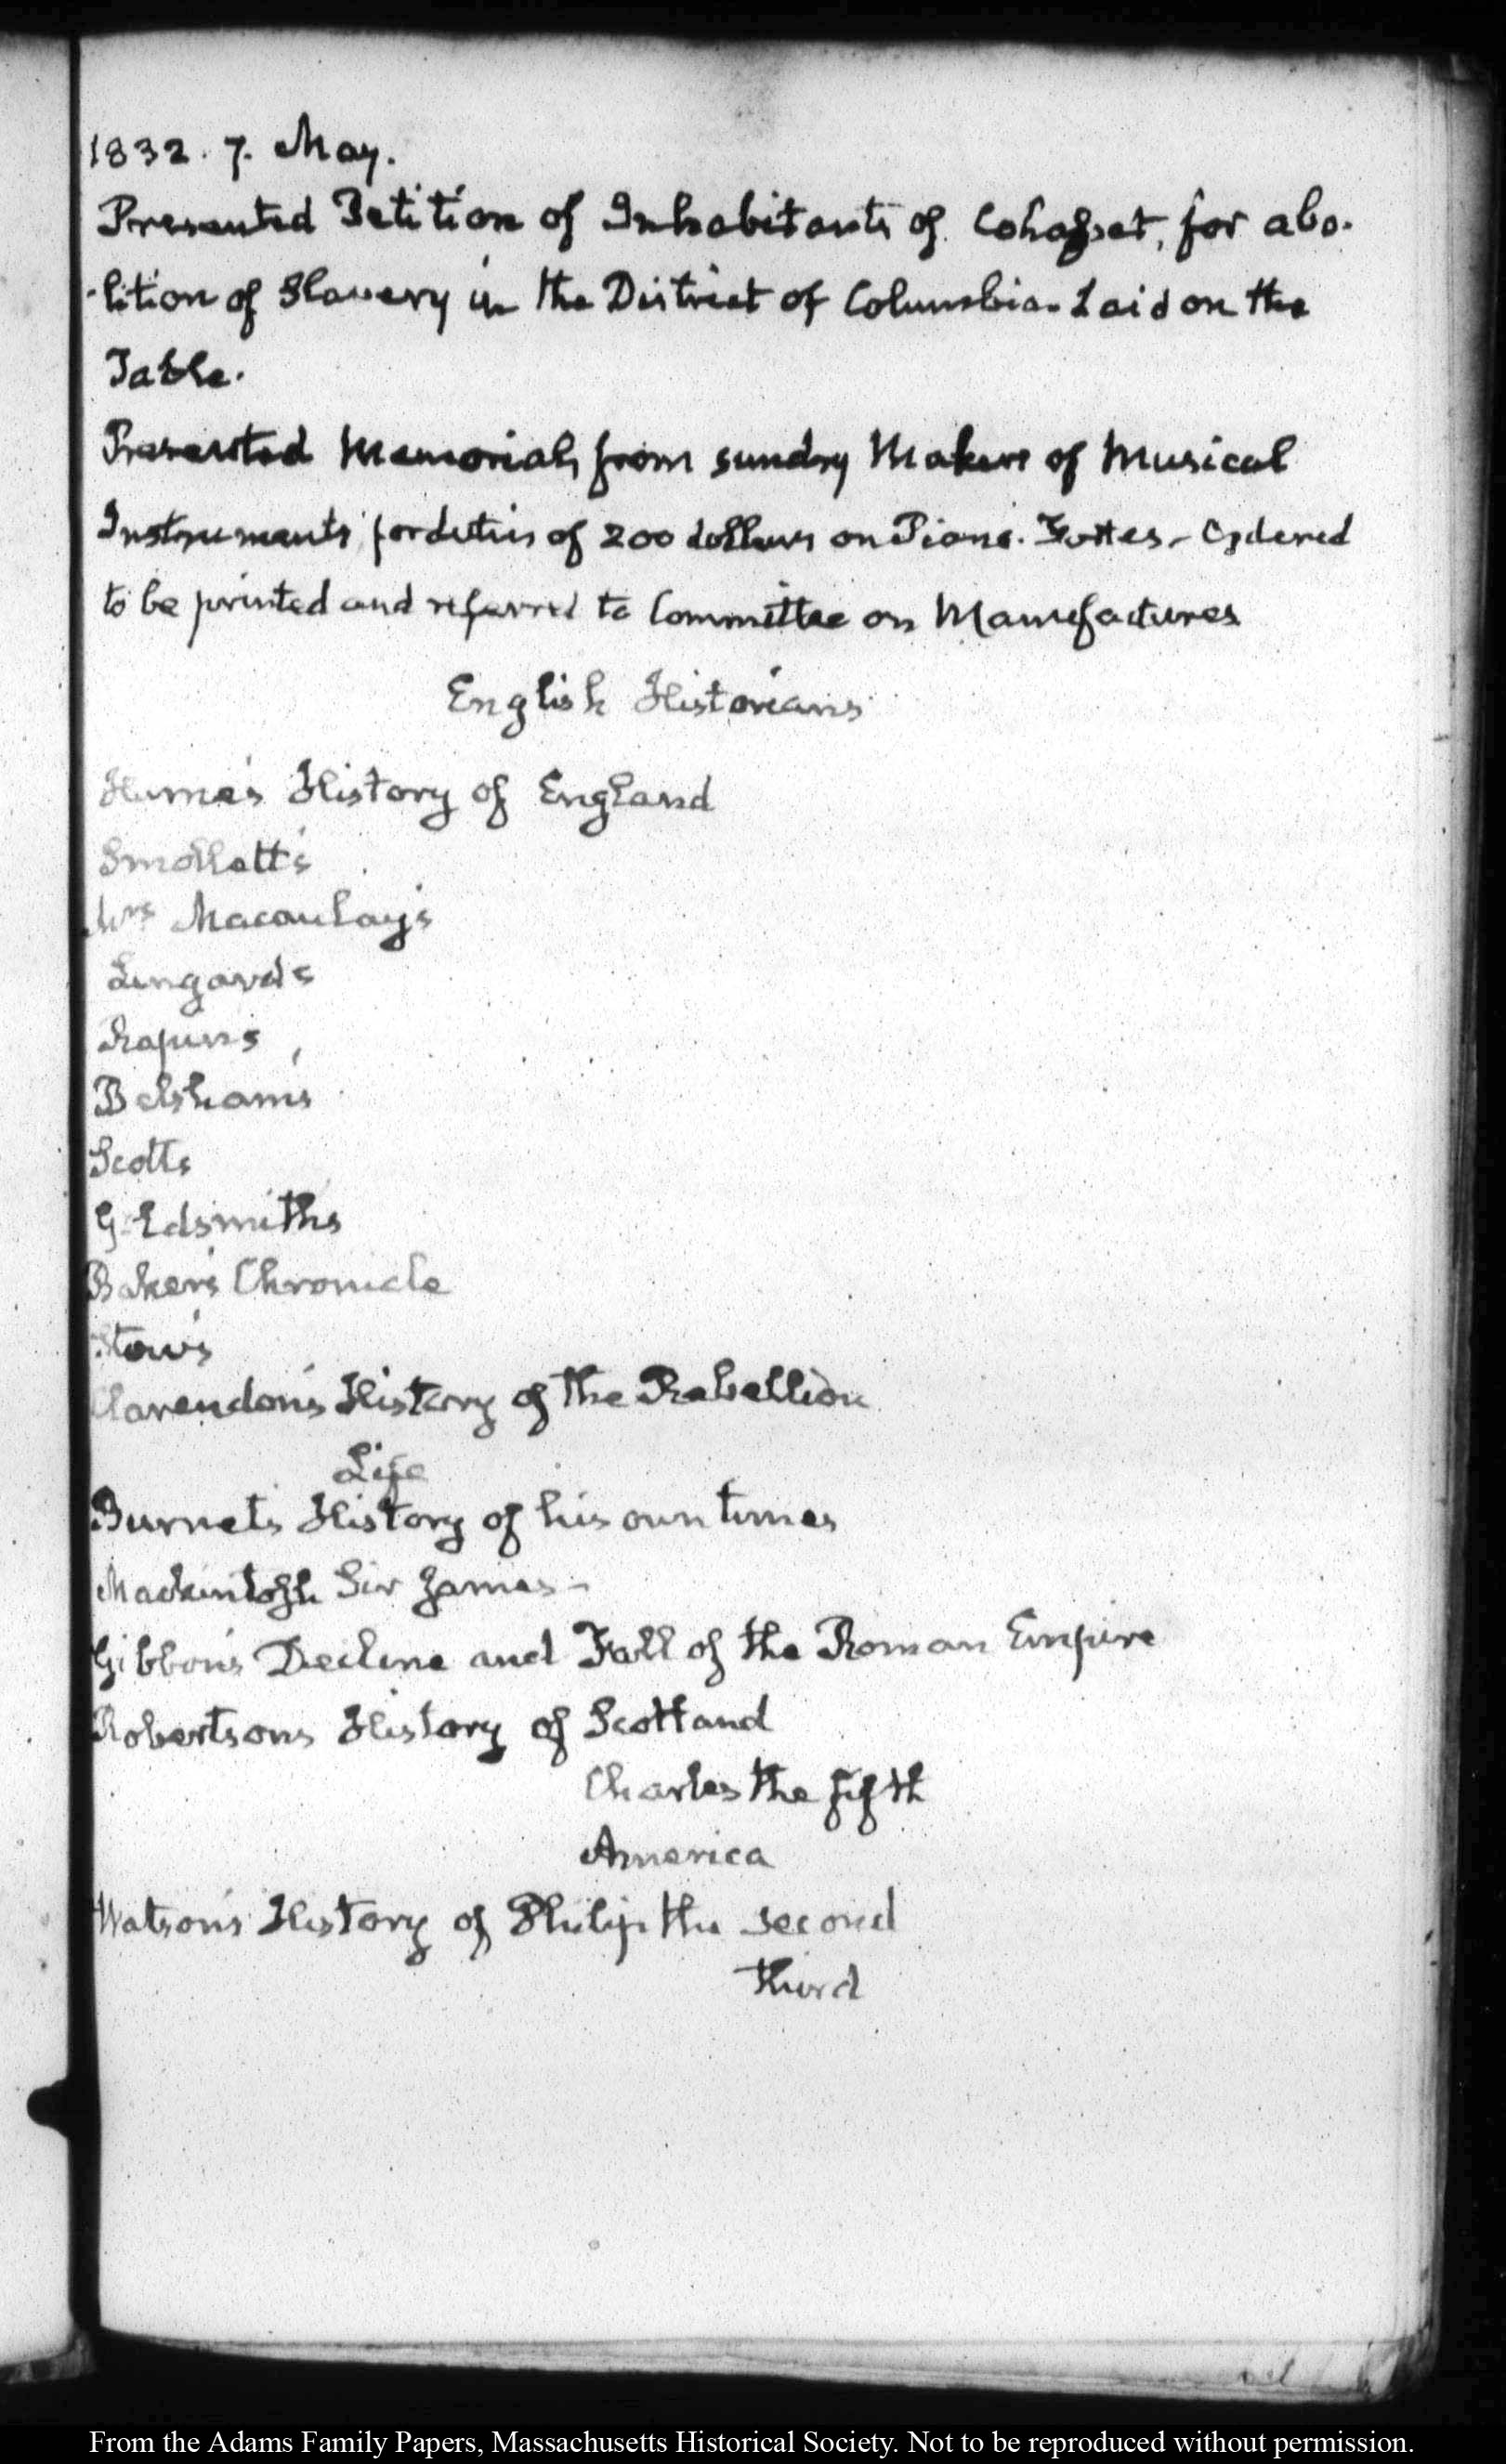 1832. 7. May.
Presented Petition of Inhabitants of Cohasset, for abo-
-lition of Slavery in the District of Columbia. Laid on the
Table.
Presented Memorial, from sundry Makers of Musical
Instruments for duties of 200 dollars on Piano-Fortes - Ordered
to be printed and referred to Committee on Manufactures
English Historians
Hume's History of England
Smollett's
Mrs Macaulay's
Lingard's
Rapin's
Belsham's
Scotts
Goldsmiths
Baker's Chronicle
Stow's
Clarendon's History of the Rebellion
Life
Burnet's History of his own times
Mackintosh Sir James -
Gibbon's Decline and Fall of the Roman Empire
Robertsons History of Scotland
Charles the fifth
America
Watson's History of Philip the second
third
From the Adams Family Papers, Massachusetts Historical Society. Not to be reproduced without permission.